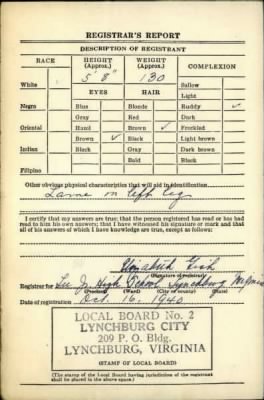 REGISTRAR'S REPORT
DESCRIPTION OF REGISTRANT
RACE HEIGHT (Approx.) WEIGHT (Approx.) COMPLEXION
5' 8" 130
White ✓ Sallow
EYES HAIR Light
Negro Blue Blonde Ruddy ✓
Gray Red Dark
Oriental Hazel Brown ✓ Freckled
Brown ✓ Black Light brown
Indian Black Gray Dark brown
Bald Black
Filipino
Other obvious physical characteristics that will aid in identification
Lame in left leg
I certify that my answers are true; that the person registered has read or has had
read to him his own answers; that I have witnessed his signature or mark and that
all of his answers of which I have knowledge are true, except as follows:
Elizabeth
(Signature of registrar)
Registrar for Jr. High School Lynchburg Virginia
(Precinct) (Ward) (City or county) (State)
Date of registration Oct. 16, 1940
LOCAL BOARD No. 2
LYNCHBURG CITY
209 P. O. Bldg.
LYNCHBURG, VIRGINIA
(STAMP OF LOCAL BOARD)
(The stamp of the Local Board having jurisdiction of the registrant
shall be placed in the above space.)